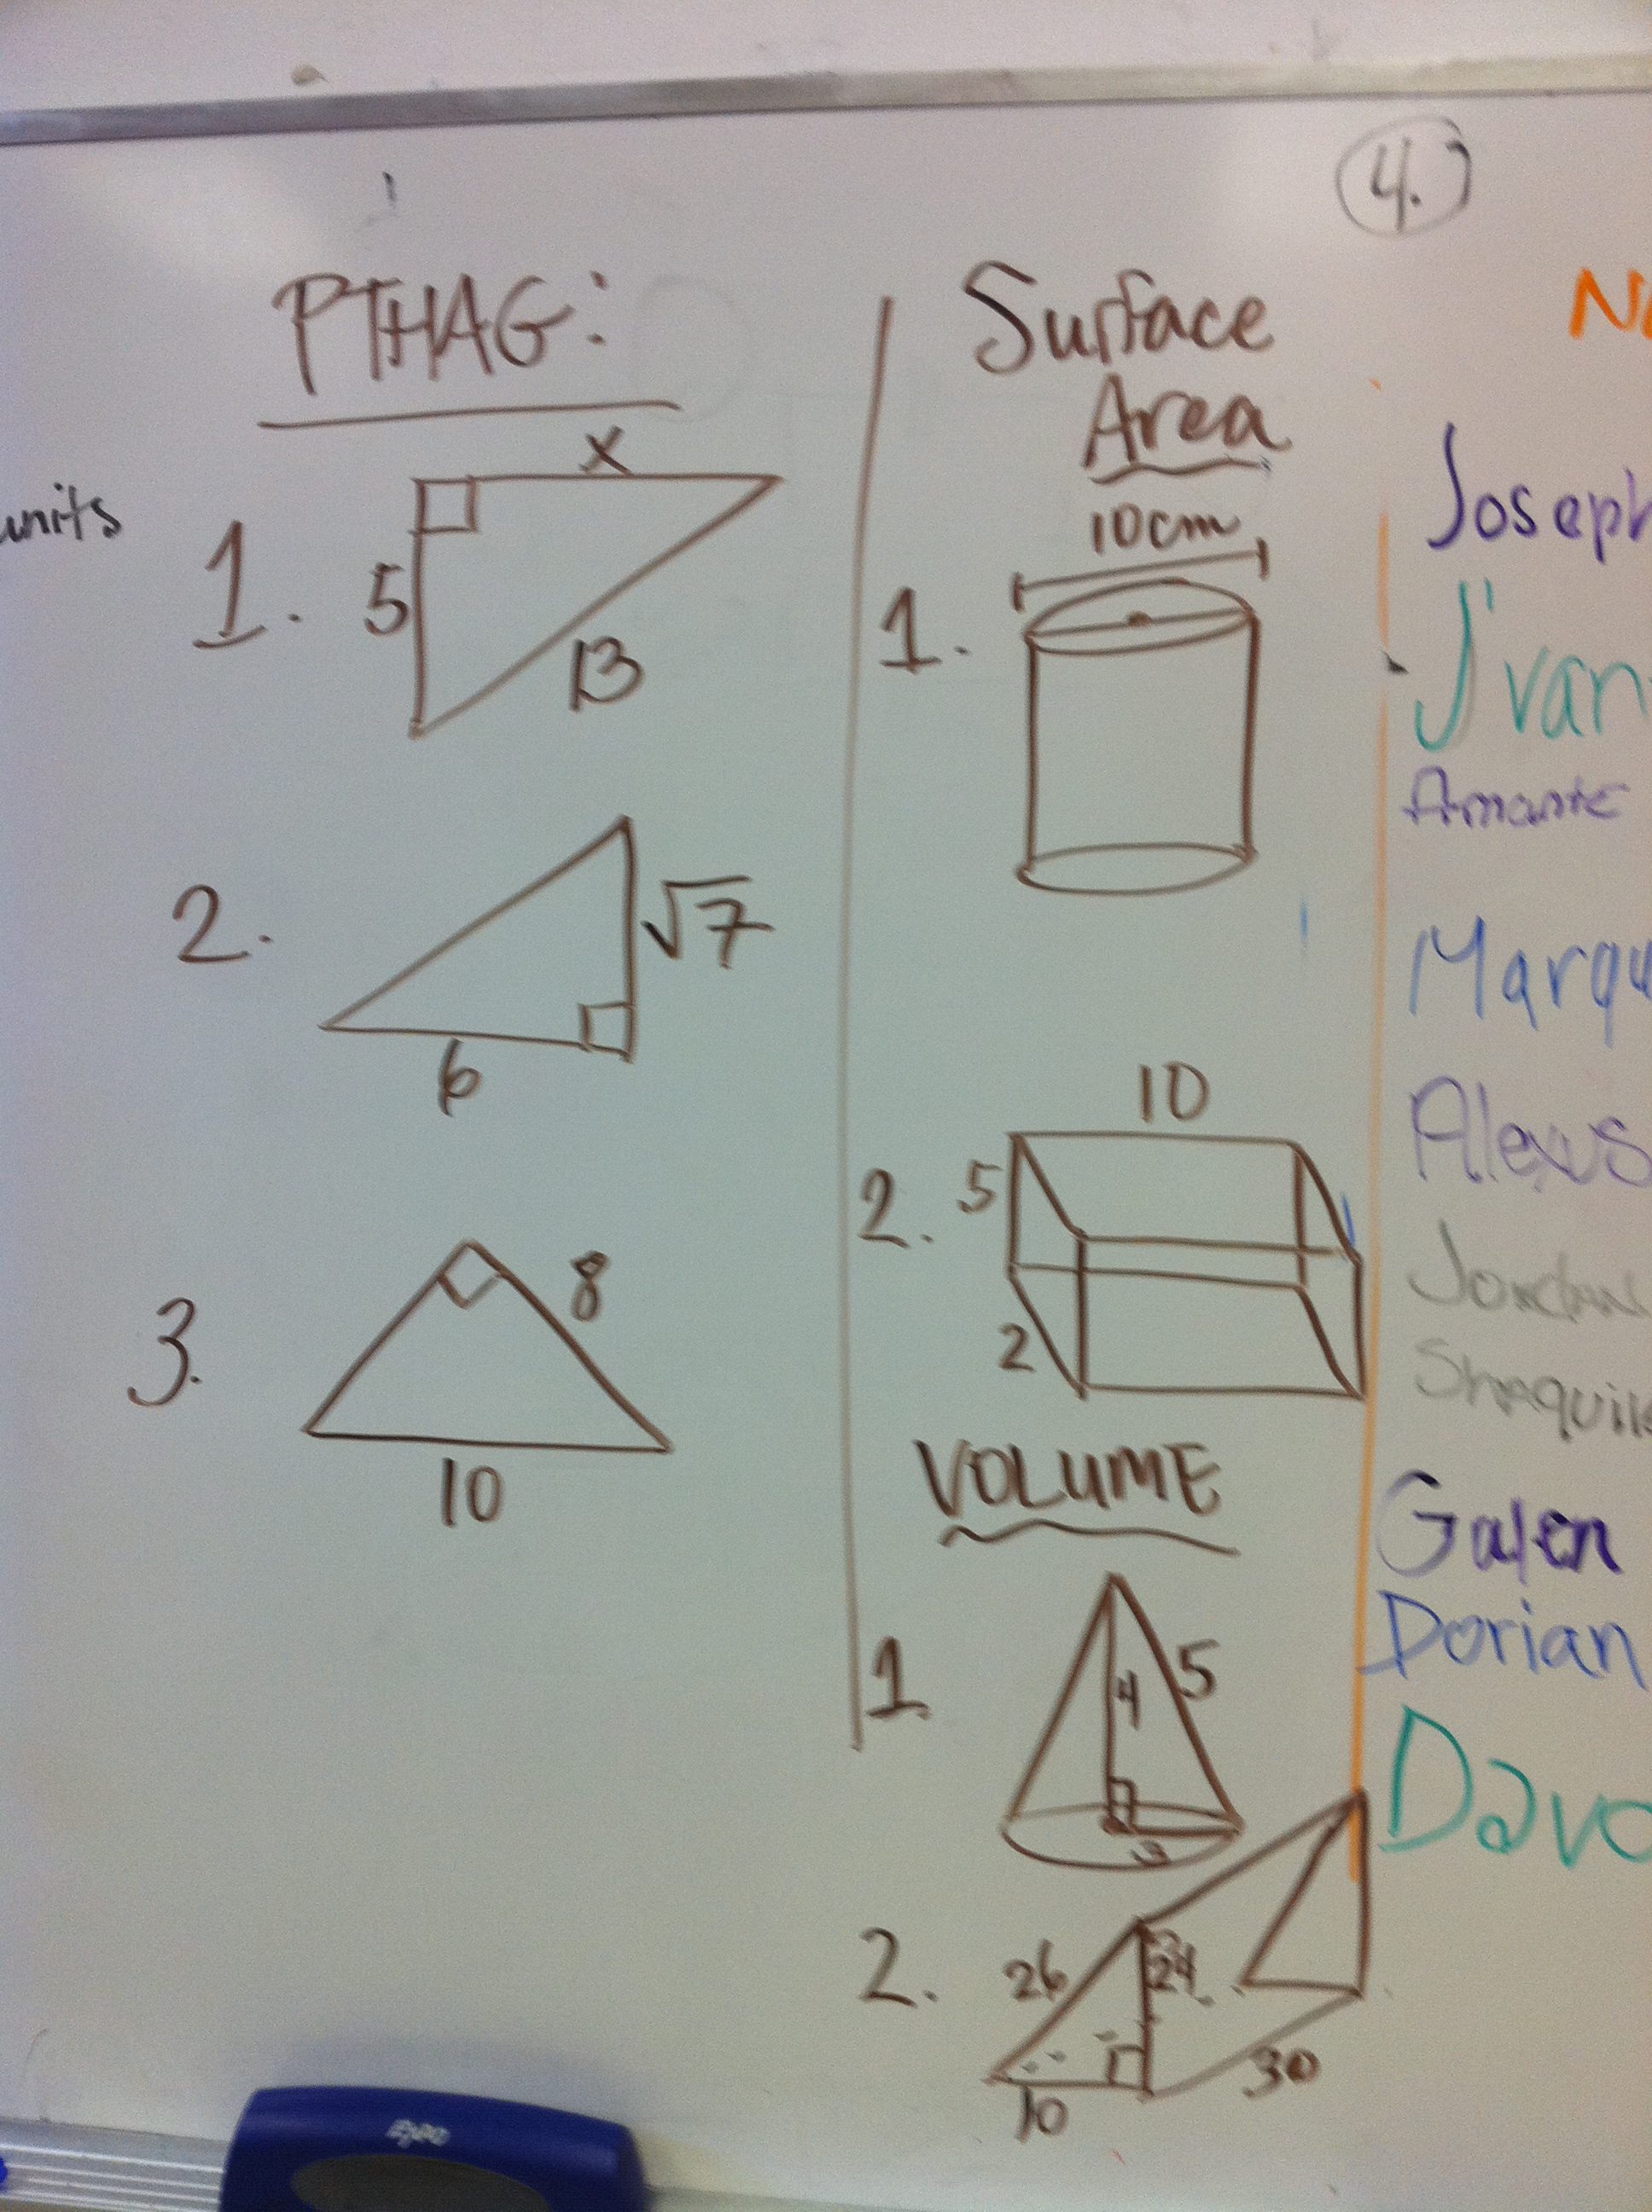 4.
PTHAG:
units
1.
x
5
13
2.
√7
6
3.
8
10
Surface
Area
10cm
1.
10
2.
5
2
VOLUME
1.
4
5
3
2.
26
24
10
30
Joseph
J'van
Amante
Marqu
Alexus
Jordan
Galen
Dorian
Expo